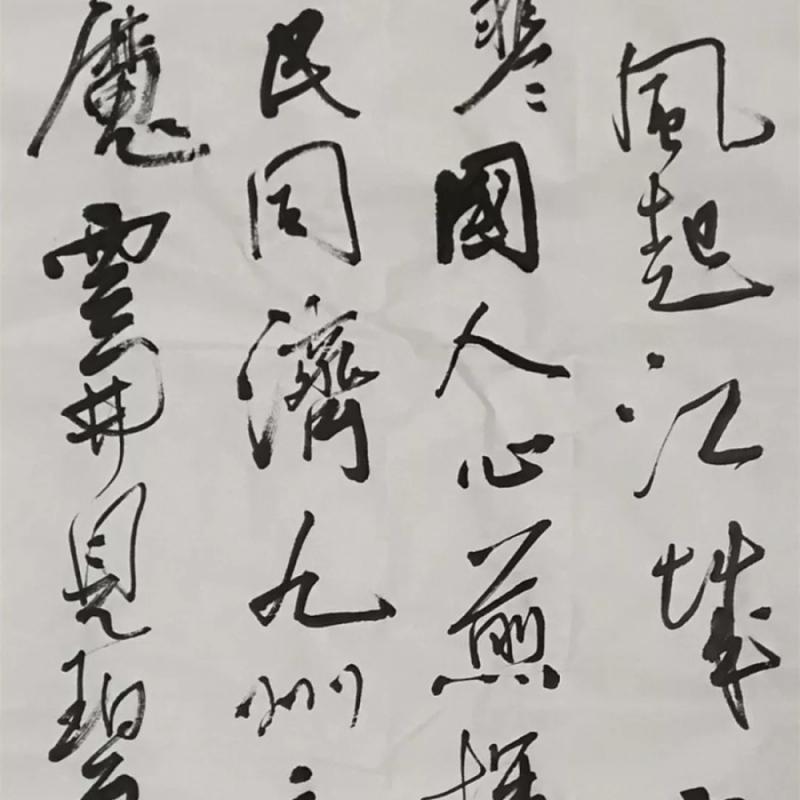 風起江城
國人心煎
民同濟九州
魔雲開見碧